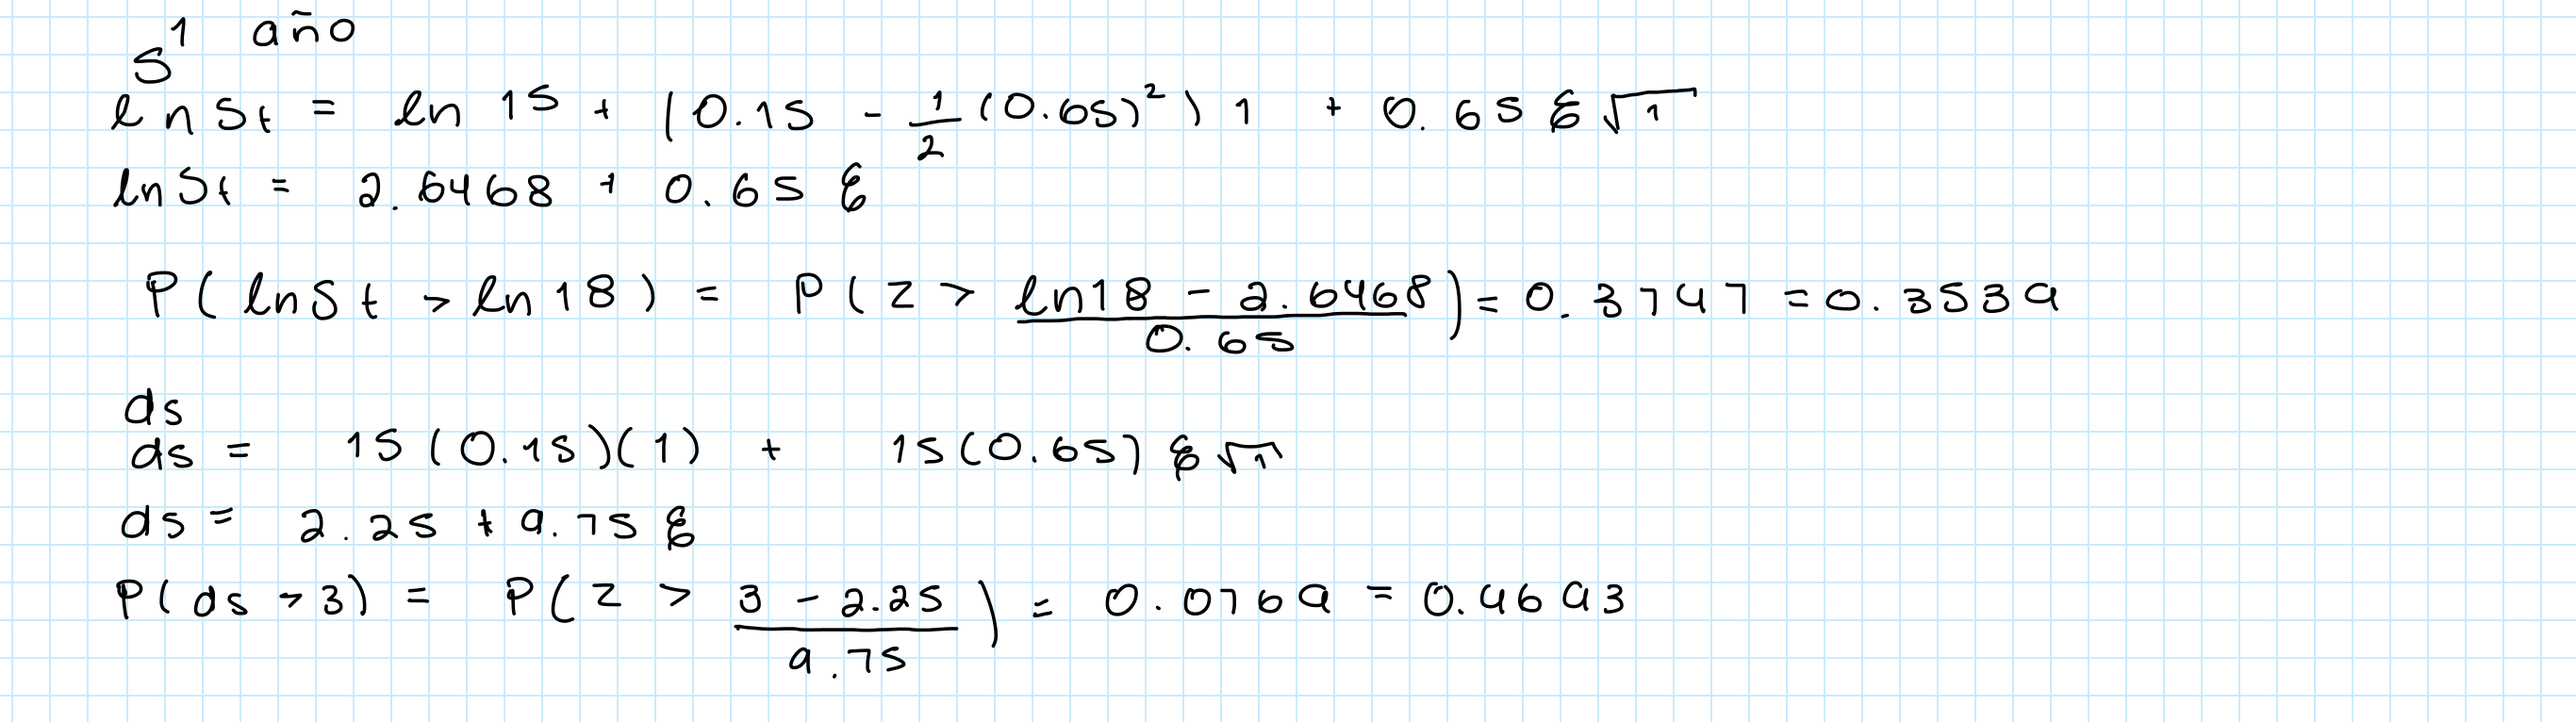 1 año
S
ln St = ln 15 + (0.15 - 1/2 (0.65)²) 1 + 0.65 ε √1
ln St = 2.6468 + 0.65 ε
P( ln St > ln 18 ) = P( Z > (ln 18 - 2.6468)/0.65 ) = 0.3747 = 0.3539
ds
ds = 15 (0.15)(1) + 15(0.65) ε √1
ds = 2.25 + 9.75 ε
P( ds > 3) = P( Z > (3 - 2.25)/9.75 ) = 0.0769 = 0.4693